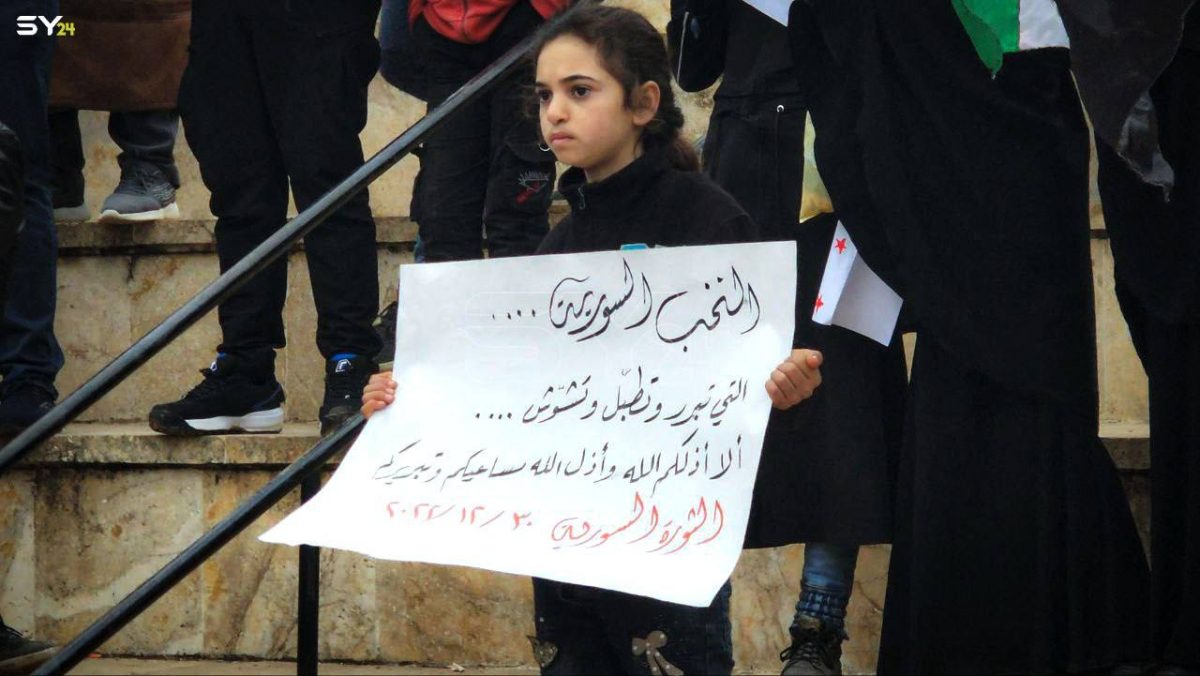 SY24
النخب السورية ....
التي تبرر وتطبّل وتشوّش ....
ألا أذلكم الله وأذل الله مساعيكم وتبريركم
الثورة السورية ٣٠/١٢/٢٠٢٢